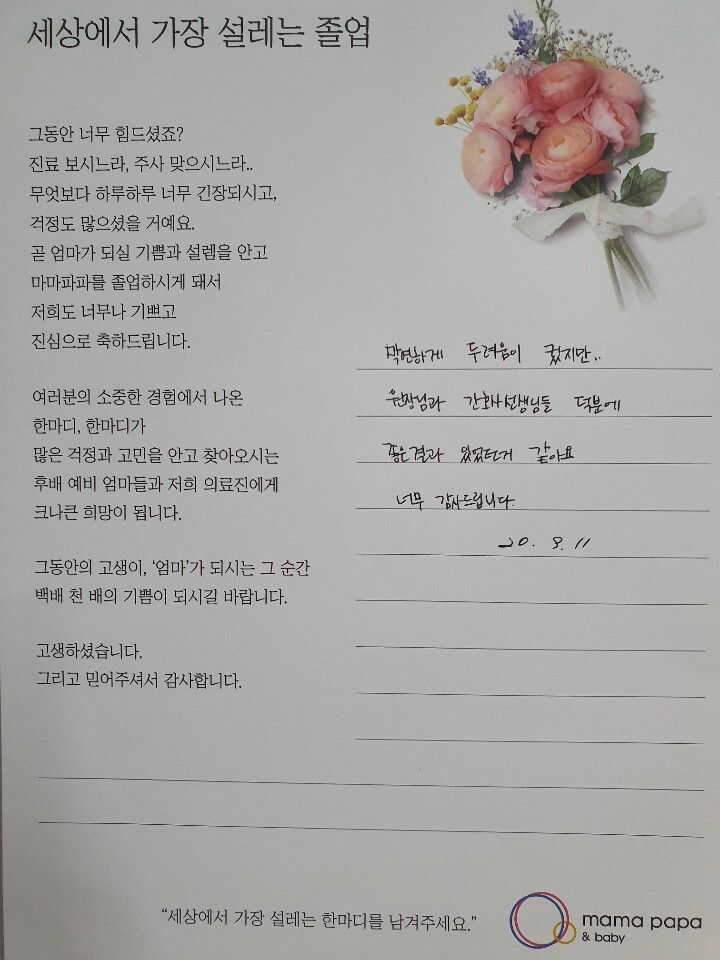 세상에서 가장 설레는 졸업
그동안 너무 힘드셨죠?
진료 보시느라, 주사 맞으시느라..
무엇보다 하루하루 너무 긴장되시고,
걱정도 많으셨을 거예요.
곧 엄마가 되실 기쁨과 설렘을 안고
마마파파를 졸업하시게 돼서
저희도 너무나 기쁘고
진심으로 축하드립니다.
여러분의 소중한 경험에서 나온
한마디, 한마디가
많은 걱정과 고민을 안고 찾아오시는
후배 예비 엄마들과 저희 의료진에게
크나큰 희망이 됩니다.
그동안의 고생이, '엄마'가 되시는 그 순간
백배 천 배의 기쁨이 되시길 바랍니다.
고생하셨습니다.
그리고 믿어주셔서 감사합니다.
막연하게 두려움이 컸지만..
원장님과 간호사선생님들 덕분에
좋은결과 있었던거 같아요
너무 감사드립니다.
20. 9. 11
"세상에서 가장 설레는 한마디를 남겨주세요."
mama papa
& baby